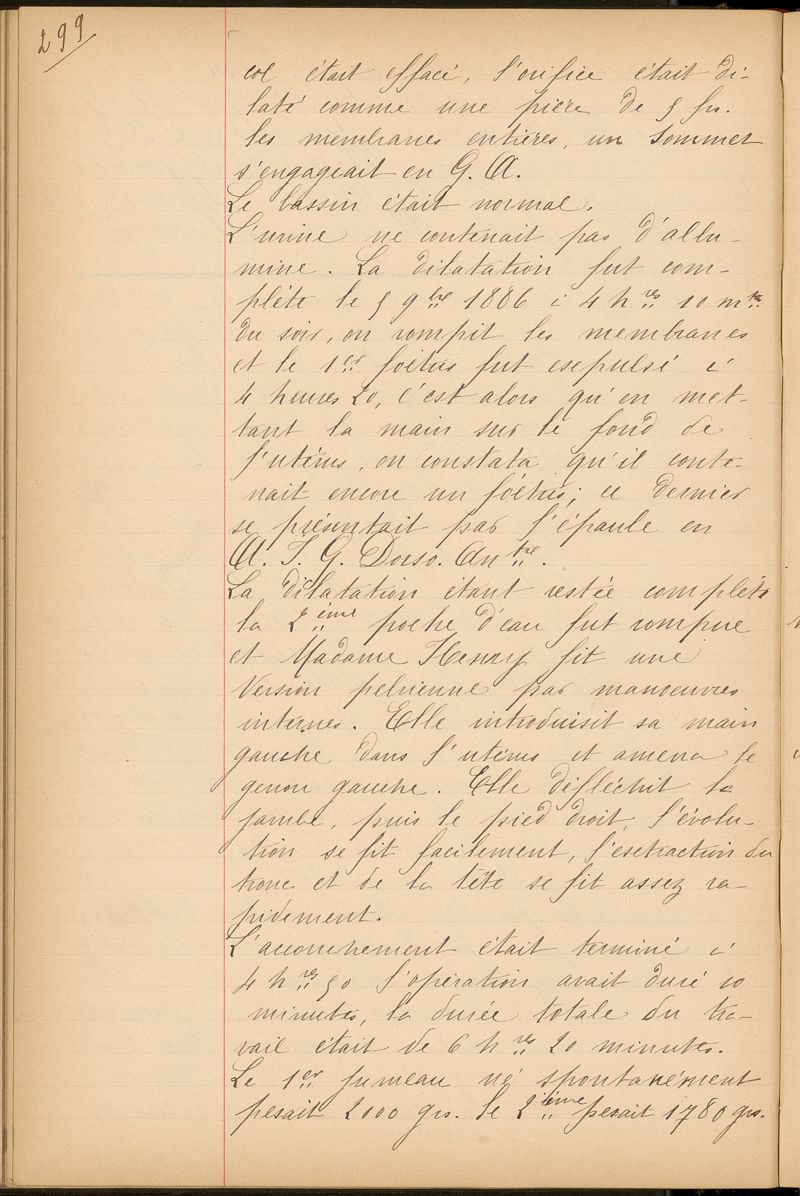 299
col était effacé, l'orifice était di-
laté comme une pièce de 5 frs.
les membranes entières, un sommet
s'engageait en G. A.
Le bassin était normal.
L'urine ne contenait pas d'albu-
mine. La dilatation fut com-
plète le 5 9bre 1886 à 4 hres 10 mtes
du soir, on rompit les membranes
et le 1er foetus fut expulsé à
4 heures 20, c'est alors qu'en met-
tant la main sur le fond de
l'utérus, on constata qu'il conte-
nait encore un foetus; ce dernier
se présentait par l'épaule en
A. I. G. Dorso. Antre.
La dilatation étant restée complète
la 2ième poche d'eau fut rompue
et Madame Henry fit une
Version pelvienne par manoeuvres
internes. Elle introduisit sa main
gauche dans l'utérus et amena le
genou gauche. Elle défléchit la
jambe, puis le pied droit, l'évolu-
tion se fit facilement, l'extraction du
tronc et de la tête se fit assez ra-
pidement.
L'accouchement était terminé à
4 hres 50 l'opération avait duré 10
minutes, la durée totale du tra-
vail était de 6 hres 20 minutes.
Le 1er jumeau né spontanément
pesait 2000 grs. le 2ième pesait 1780 grs.